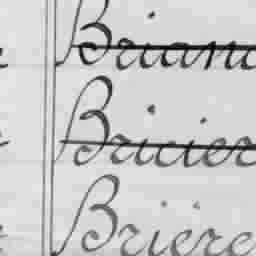 Briand
Bricier
Brière